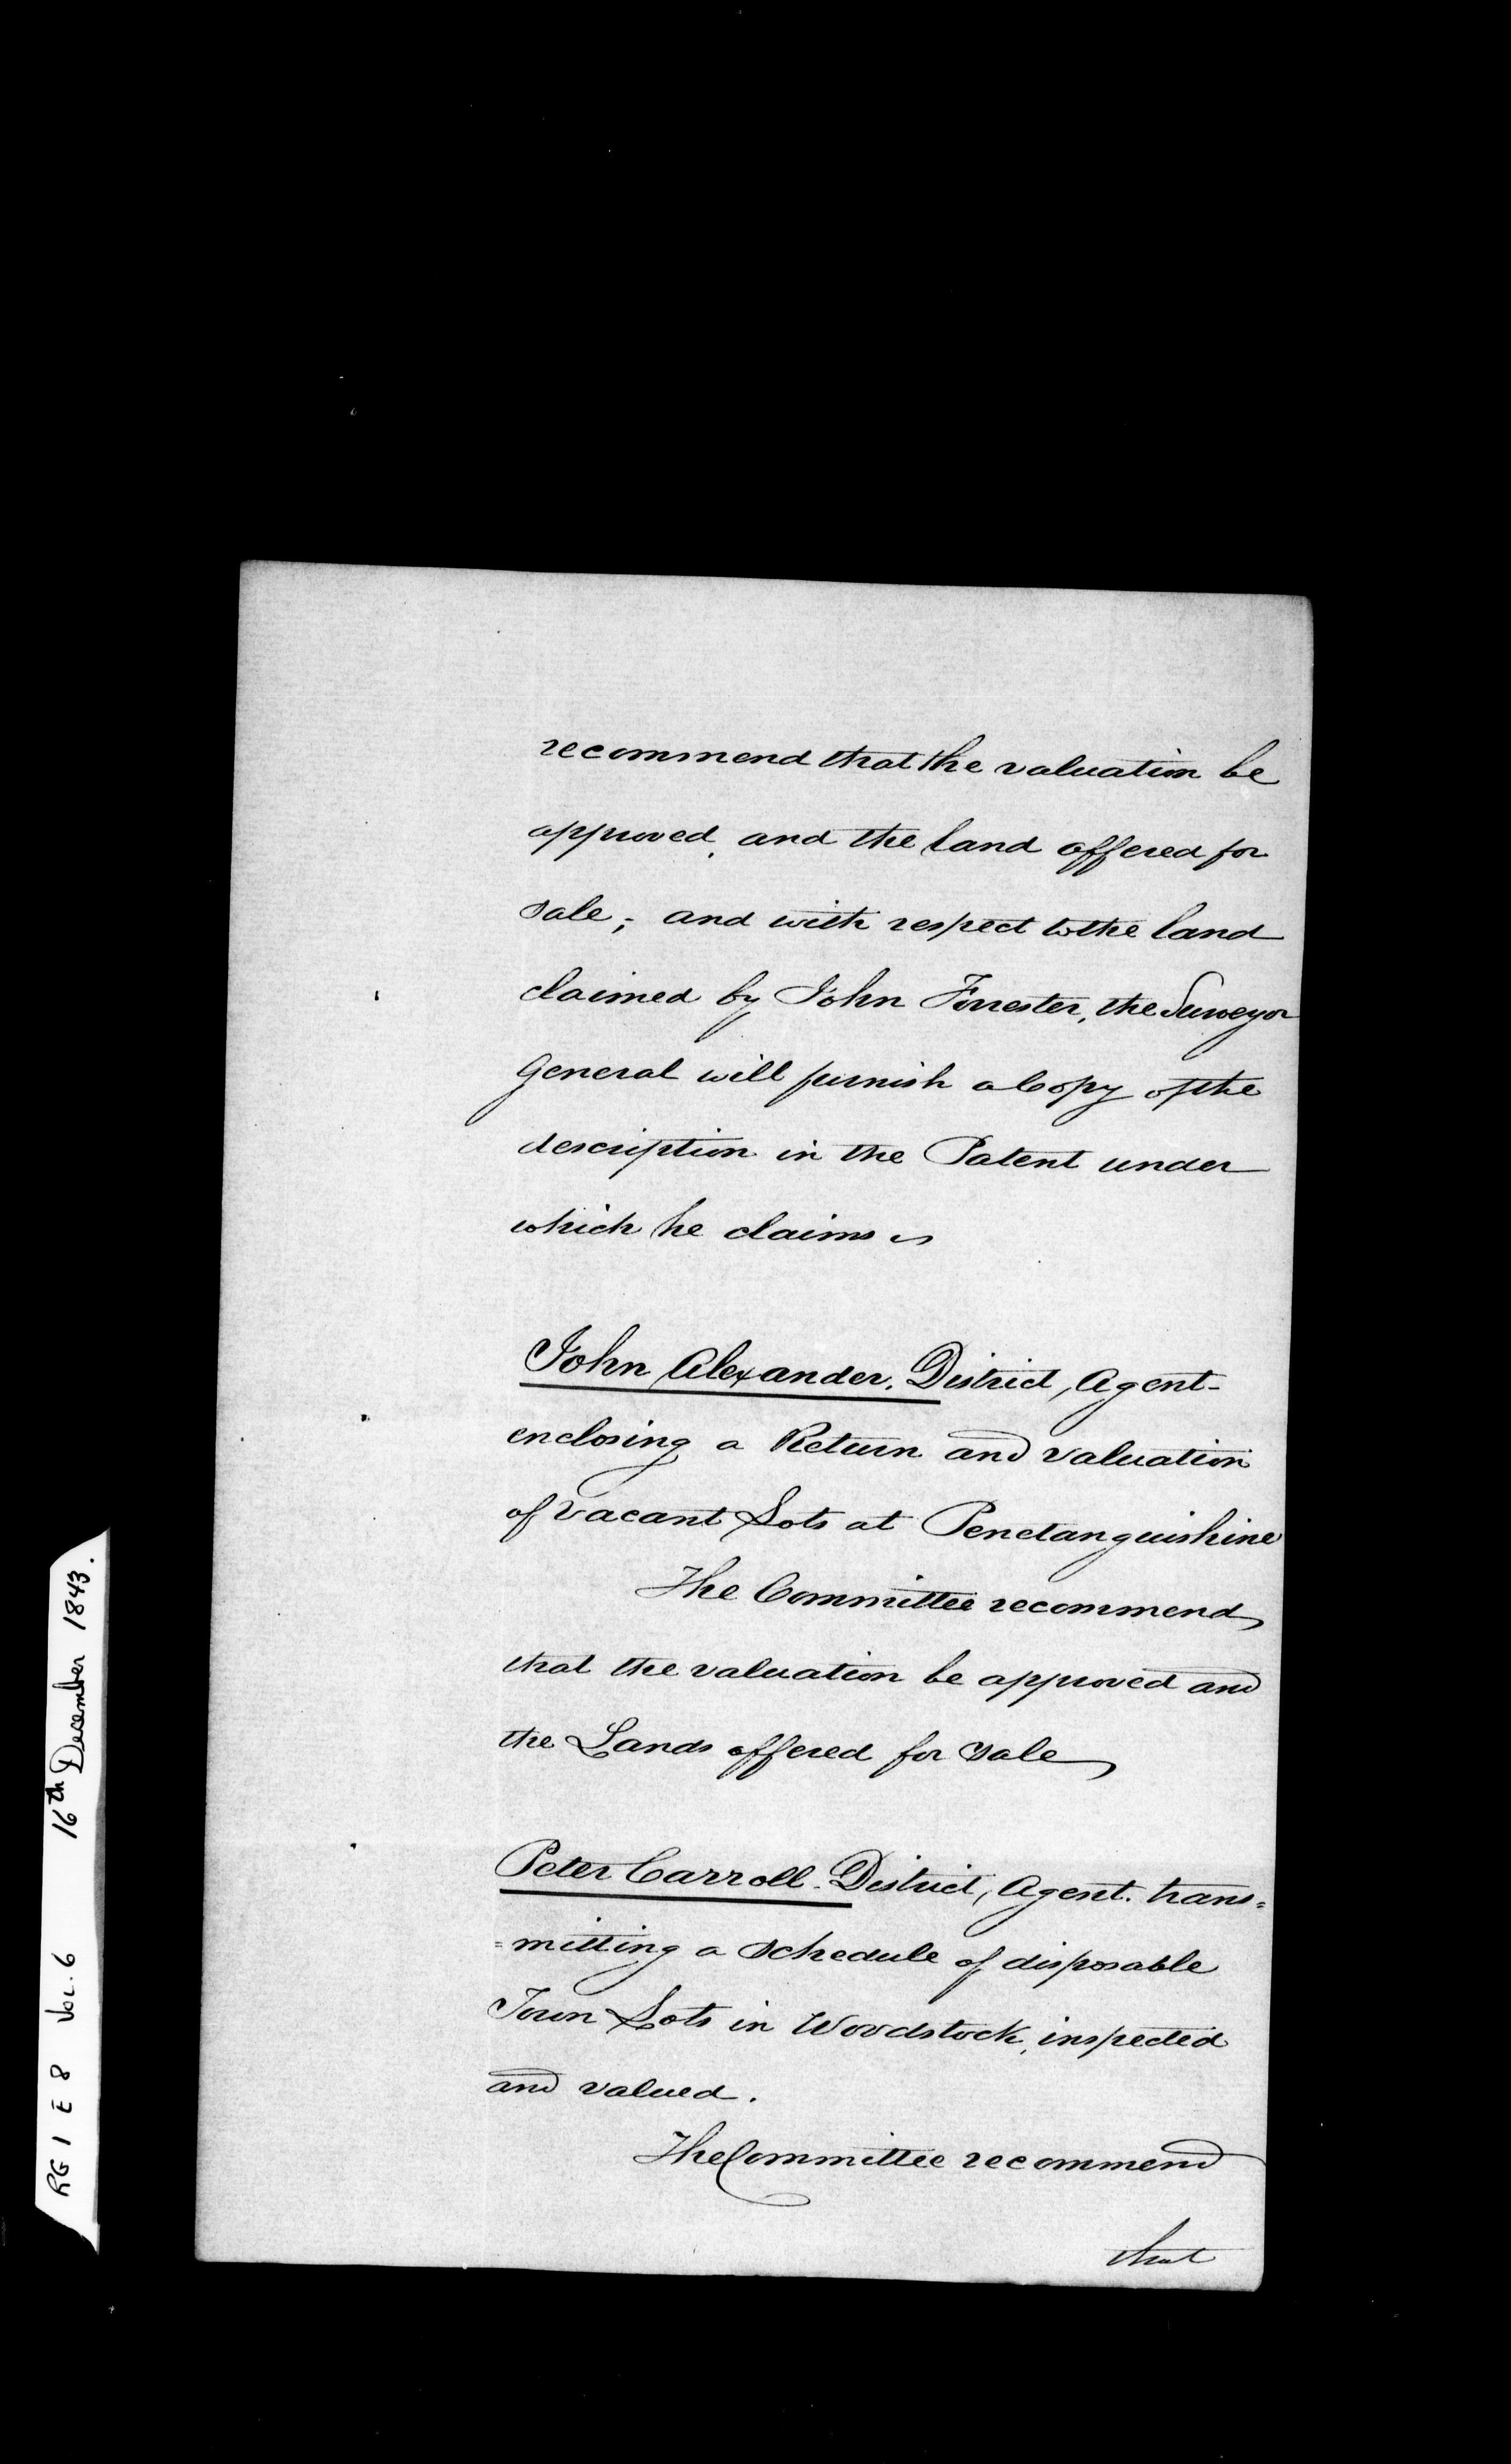 recommend that the valuation be
approved, and the land offered for
sale; and with respect to the land
claimed by John Forrester, the Surveyor
General will furnish a Copy of the
description in the Patent under
which he claims
John Alexander. District Agent-
enclosing a Return and valuation
of vacant Lots at Penetanguishine
The Committee recommend
that the valuation be approved and
the Lands offered for sale
Peter Carroll. District Agent. trans=
=mitting a schedule of disposable
Town Lots in Woodstock, inspected
and valued.
The Committee recommend
that
RG 1 E 8 Vol. 6 16th December 1843.